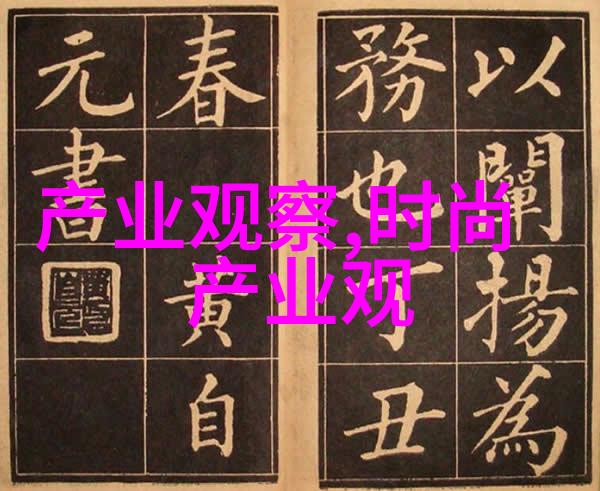 以闡揚為
務也丁丑
春黄自
元書
产业观察,时尚
产业观